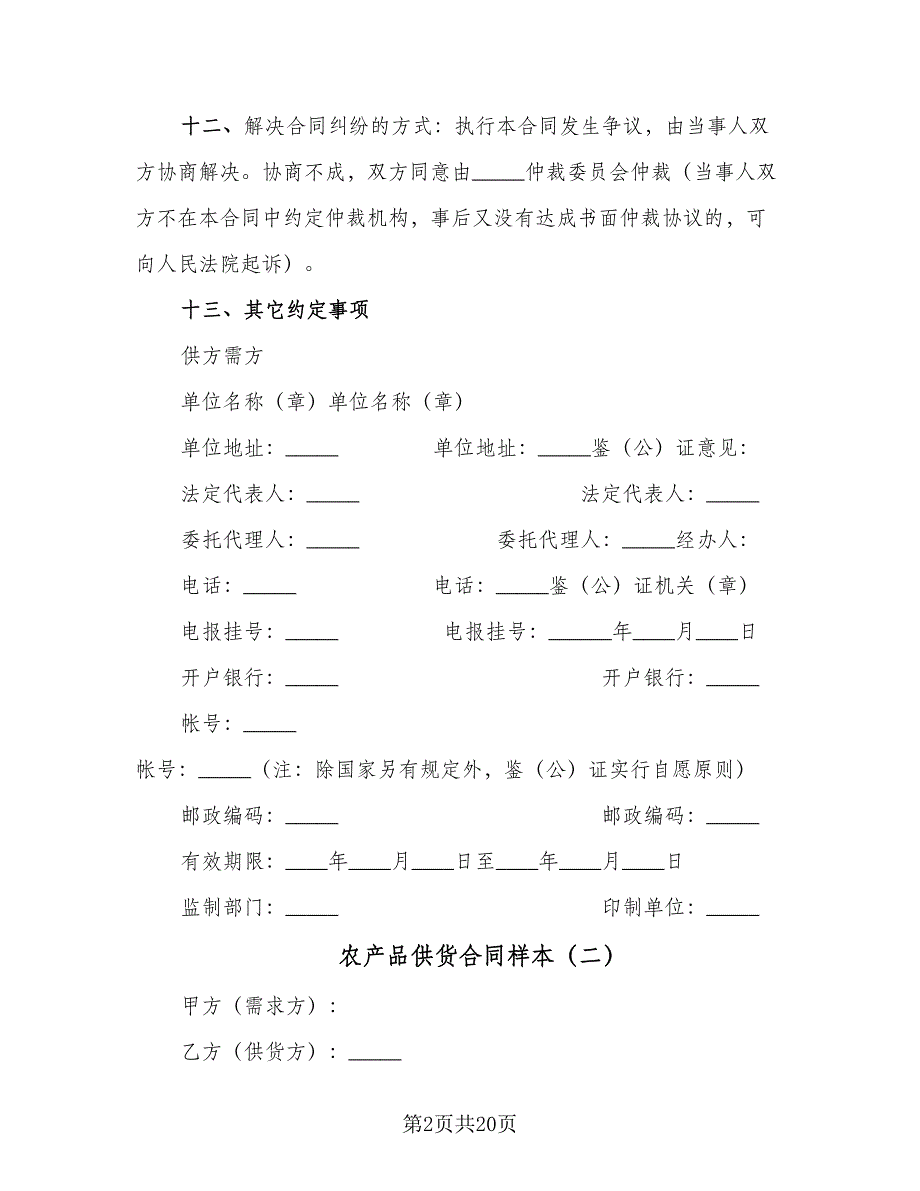 十二、解决合同纠纷的方式：执行本合同发生争议，由当事人双
方协商解决。协商不成，双方同意由_____仲裁委员会仲裁（当事人双
方不在本合同中约定仲裁机构，事后又没有达成书面仲裁协议的，可
向人民法院起诉）。
十三、其它约定事项
供方需方
单位名称（章）单位名称（章）
单位地址：_____ 单位地址：_____鉴（公）证意见：
法定代表人：_____ 法定代表人：_____
委托代理人：_____ 委托代理人：_____经办人：
电话：_____ 电话：_____鉴（公）证机关（章）
电报挂号：_____ 电报挂号：______年____月____日
开户银行：_____ 开户银行：_____
帐号：_____
帐号：_____（注：除国家另有规定外，鉴（公）证实行自愿原则）
邮政编码：_____ 邮政编码：_____
有效期限：____年____月____日至____年____月____日
监制部门：_____ 印制单位：_____
农产品供货合同样本（二）
甲方（需求方）：
乙方（供货方）：_____
第2页共20页